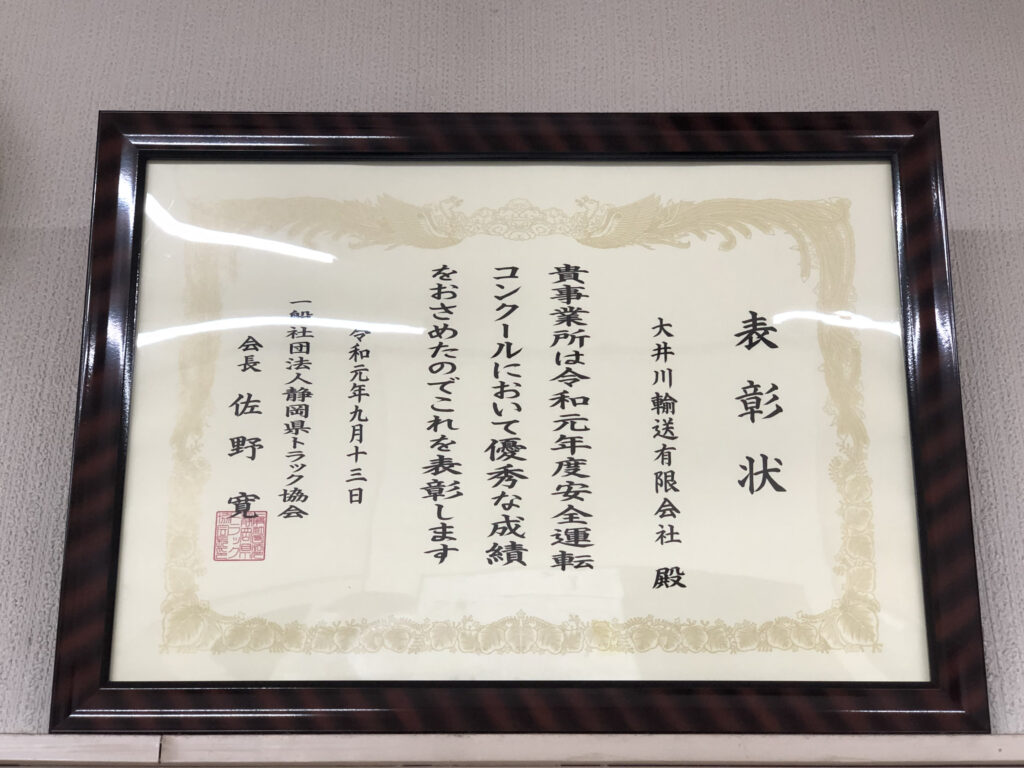 表彰状
大井川輸送有限会社 殿
貴事業所は令和元年度安全運転
コンクールにおいて優秀な成績
をおさめたのでこれを表彰します
令和元年九月十三日
一般社団法人静岡県トラック協会
会長 佐野 寛